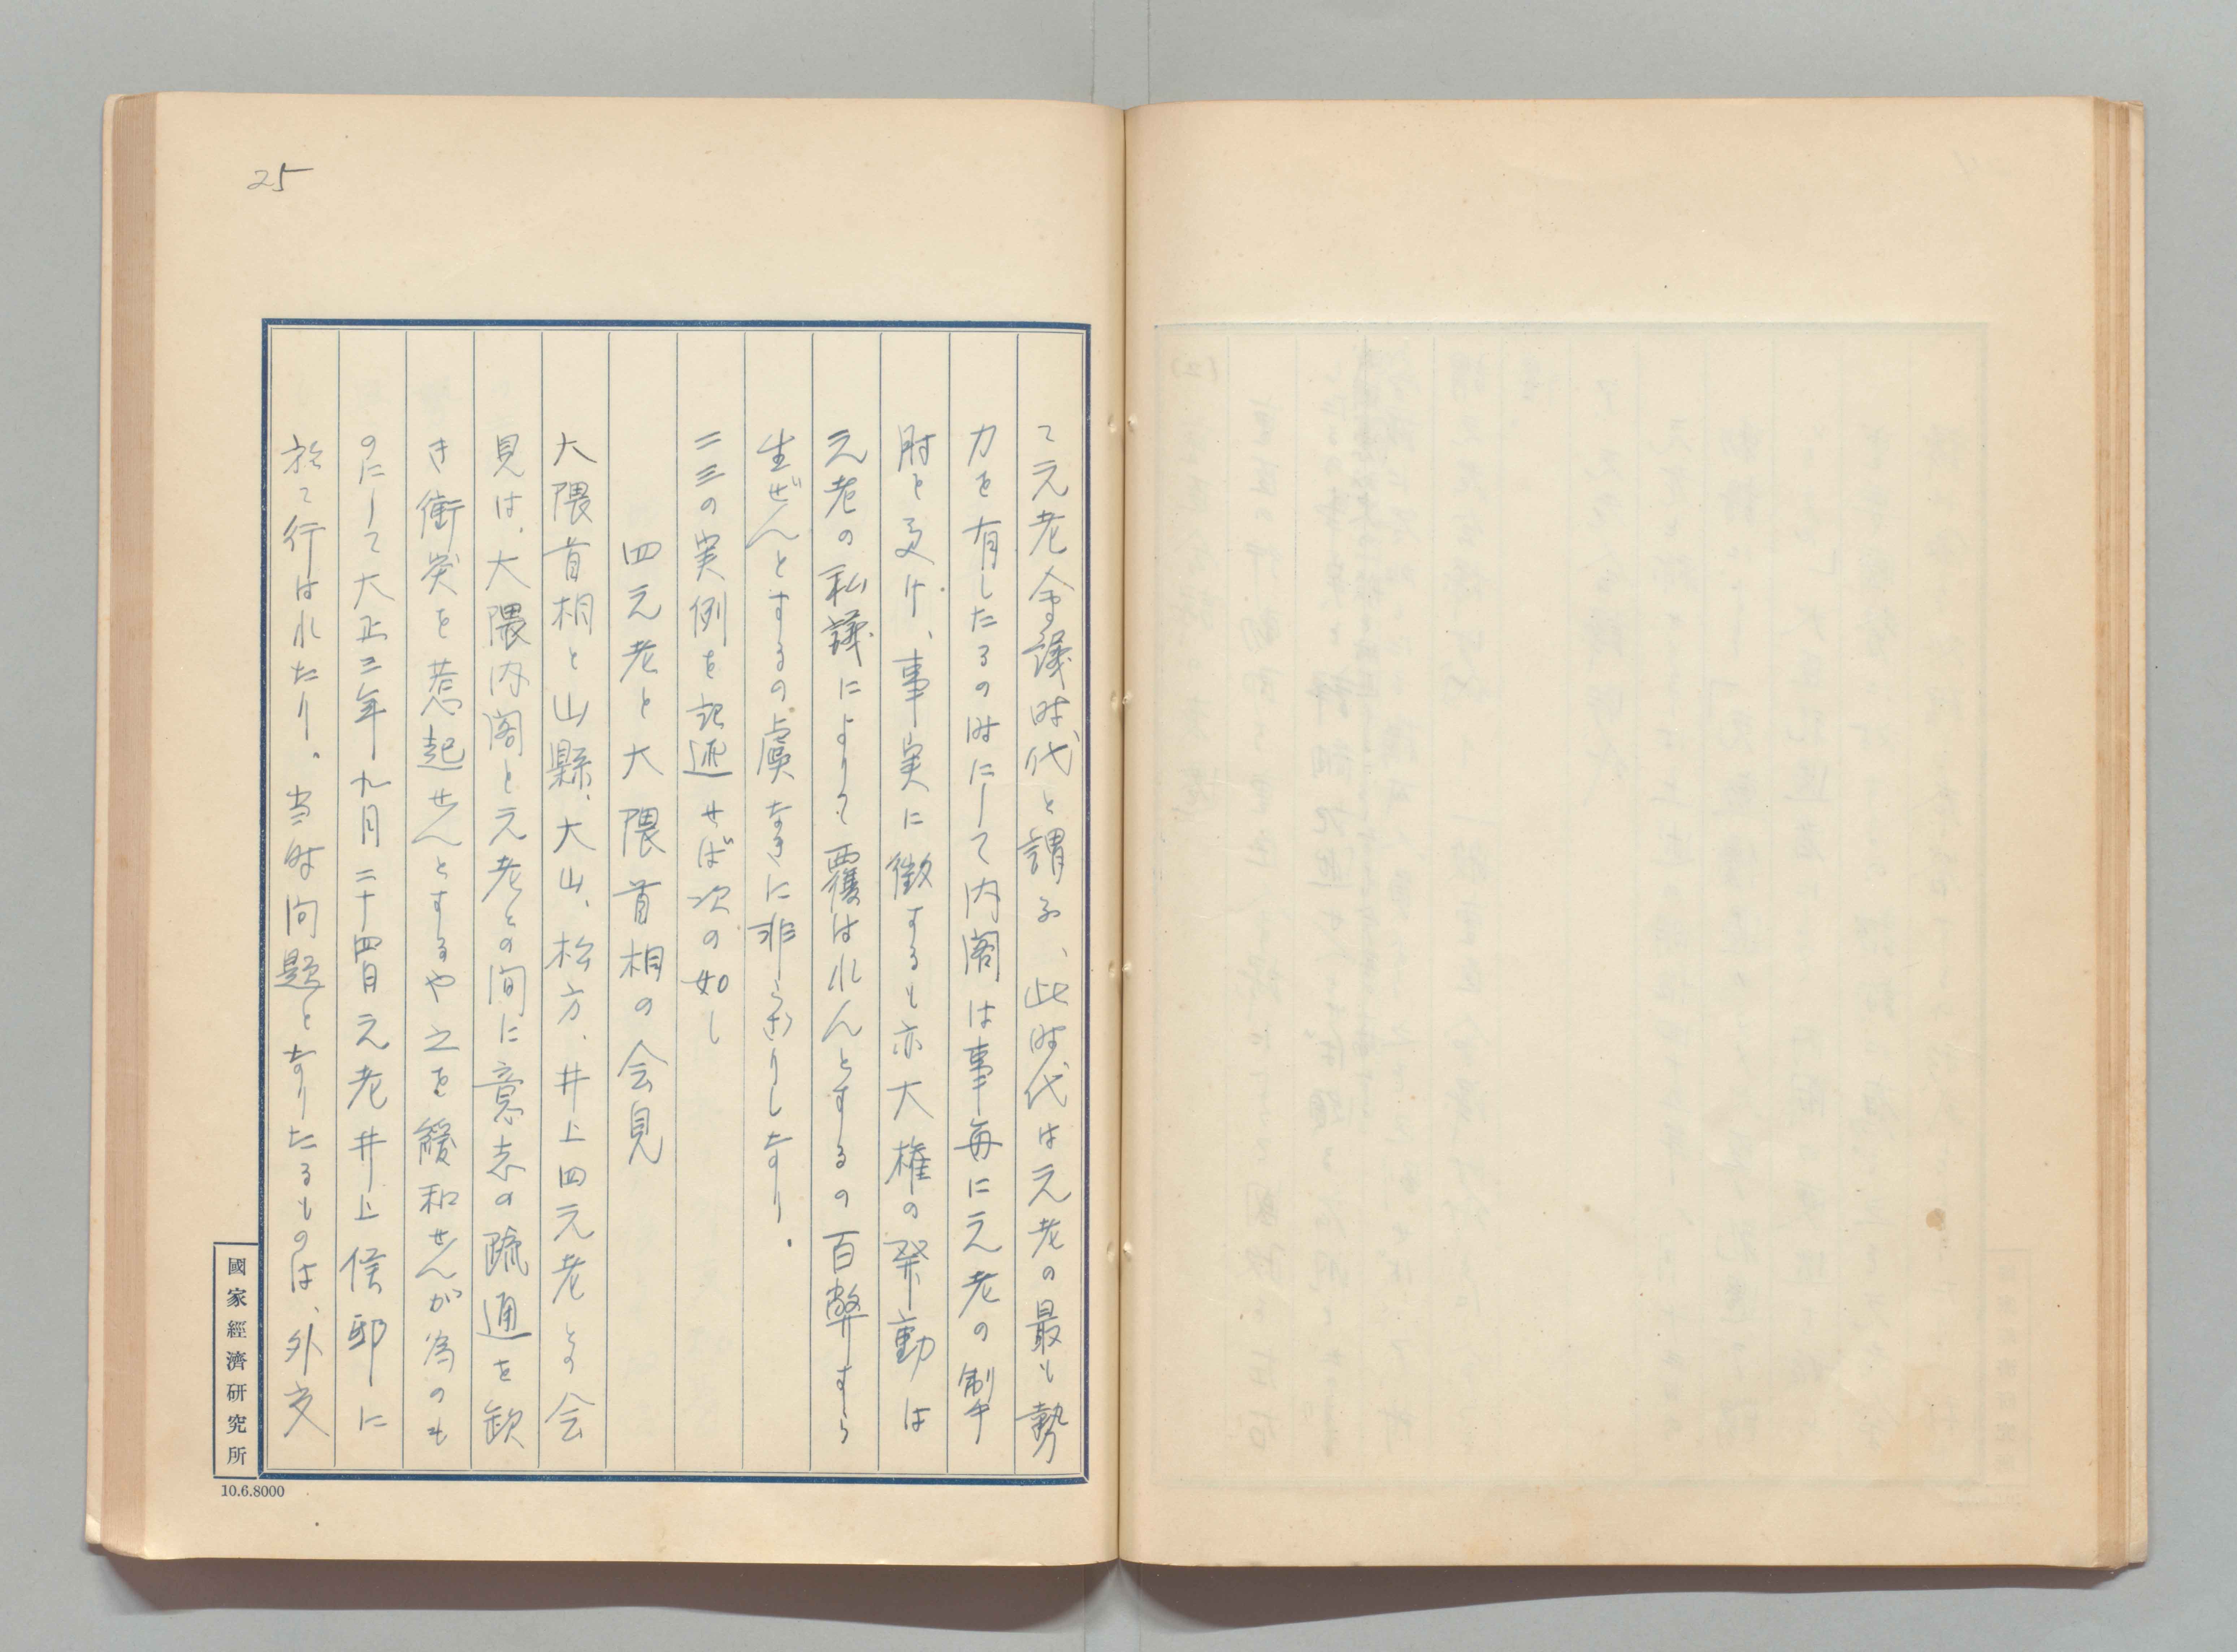 25
て元老会議時代と謂ふ、此時代は元老の最も勢
力を有したるの時にして内閣は事毎に元老の制
肘を受け、事実に徴するも亦大権の発動は
元老の私議によりて覆はれんとするの百弊すら
生ぜんとするの虞なきに非らざりしなり。
二三の実例を記述せば次の如し
四元老と大隈首相の会見
大隈首相と山縣、大山、松方、井上四元老との会
見は、大隈内閣と元老との間に意志の疏通を欠
き衝突を惹起せんとするや之を緩和せんが為のも
のにして大正三年九月二十四日元老井上侯邸に
於て行はれたり。当時問題となりたるものは、外交
國家經濟研究所
10.6.8000